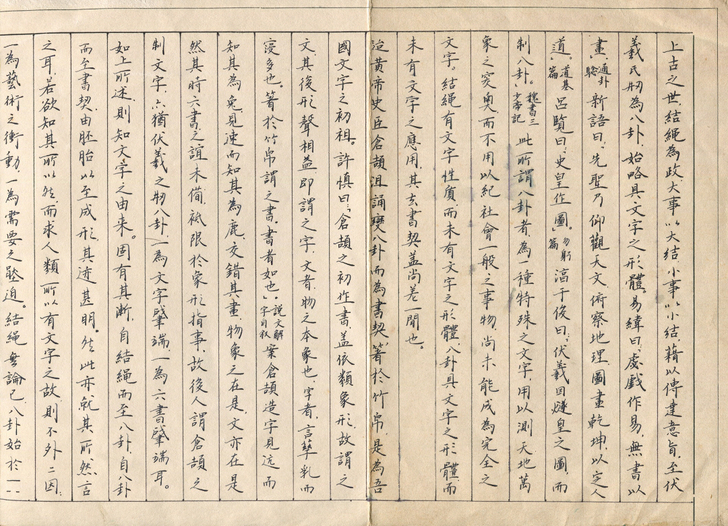 上古之世、結繩為政、大事以大結、小事以小結、藉以傳達意旨、至伏
羲氏刱為八卦、始略具文字之形體、易緯曰、虙戲作易、無書以
畫、通卦驗 新語曰、先聖乃仰觀天文、俯察地理、圖畫乾坤、以定人
道、道基篇 呂覽曰、史皇作圖、勿躬篇 淳于俊曰、伏羲因燧皇之圖、而
制八卦、魏書三少帝記 此所謂八卦者、為一種特殊之文字、用以測天地萬
象之突奧、而不用以紀社會一般之事物、尚未能成為完全之
文字、結繩有文字性質、而未有文字之形體、八卦具文字之形體、而
未有文字之應用、其去書契、蓋尚差一間也。
迨黃帝史臣倉頡沮誦、變八卦而為書契、箸於竹帛、是為吾
國文字之初祖。許慎曰、倉頡之初作書、蓋依類象形、故謂之
文、其後形聲相益、即謂之字、文者、物之本象也、字者、言孳乳而
寖多也、箸於竹帛謂之書、書者如也、說文解字自敘 案倉頡造字、見迒而
知其為兔、見速而知其為鹿、交錯其畫、物象之在是、文亦在是、
然其時六書之誼未備、祗限於象形指事、故後人謂倉頡之
制文字、亦猶伏羲之刱八卦、一為文字肇端、一為六書肇端耳。
如上所述、則知文字之由來、固有其漸、自結繩而至八卦、自八卦
而至書契、由胚胎以至成形、其迹甚明、然此亦就其所然言
之耳、若欲知其所以然、而求人類所以有文字之故、則不外二因、
一為藝術之衝動、一為需要之壓迫、結繩無論已、八卦始於一